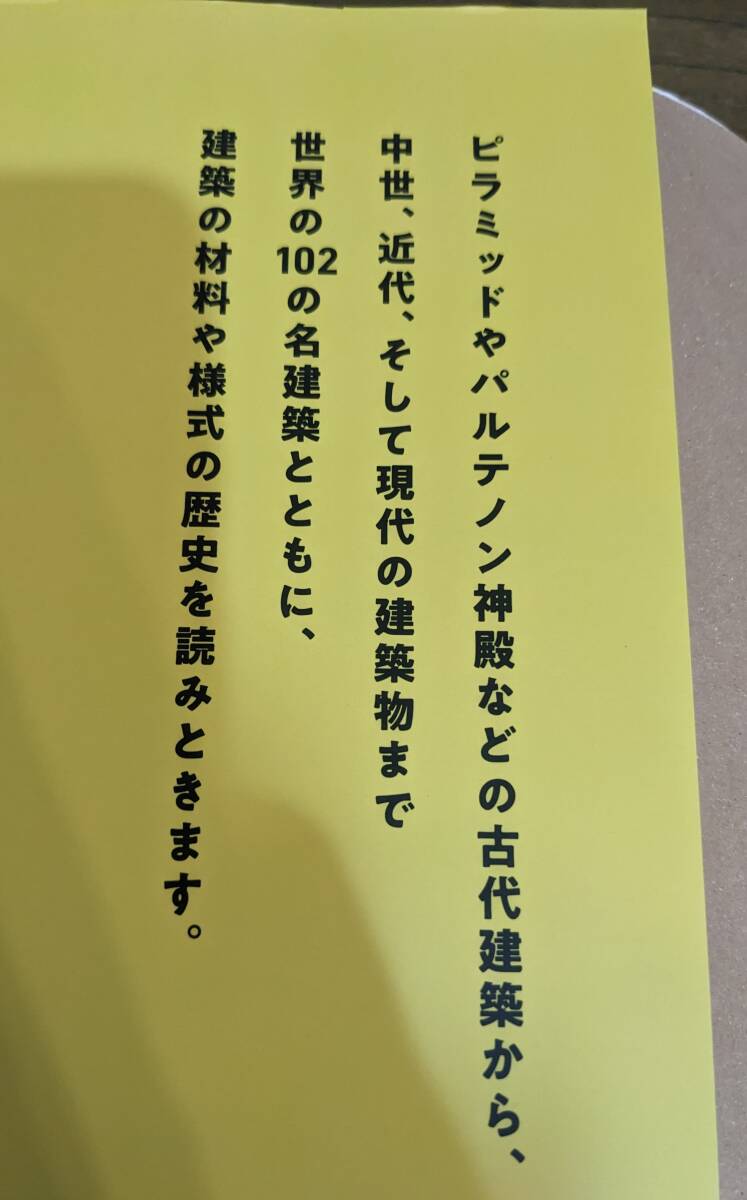 ピラミッドやパルテノン神殿などの古代建築から、
中世、近代、そして現代の建築物まで
世界の102の名建築とともに、
建築の材料や様式の歴史を読みときます。